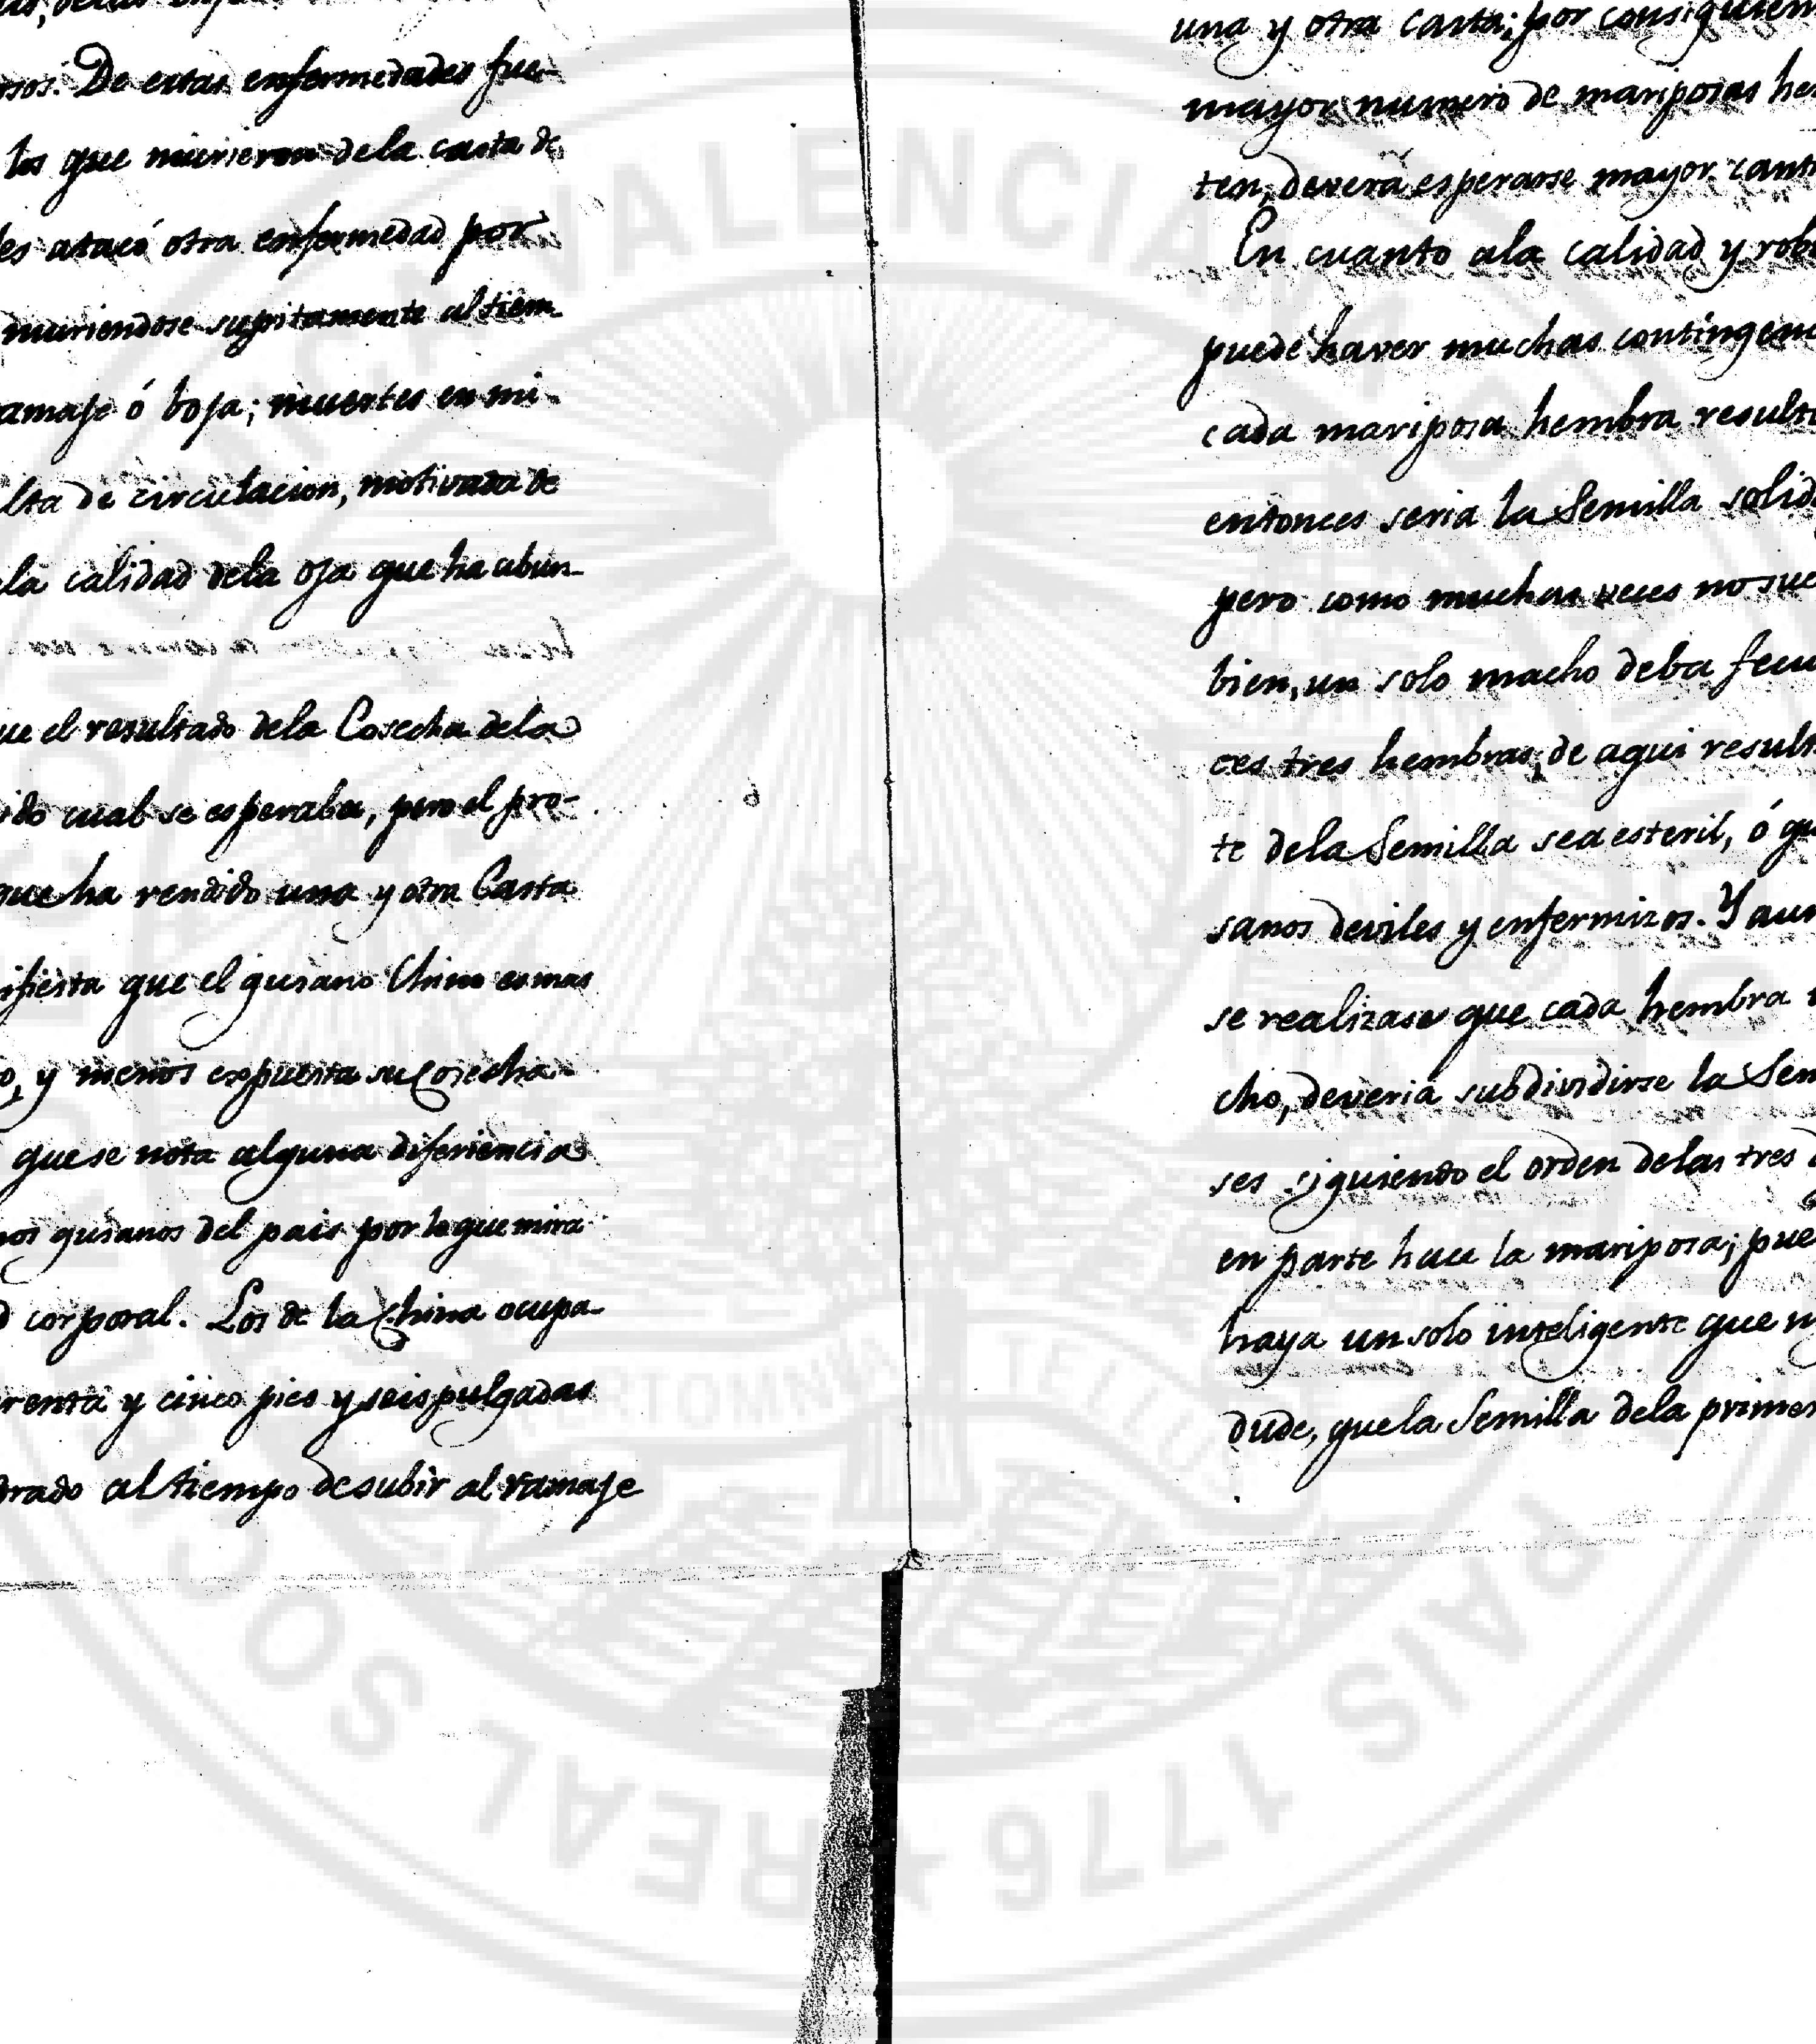 sos. De estas enfermedades fue-
los que murieron dela casta de
les atacó otra enfermedad por
muriendose supitamente al tiem-
amaje ó boja; muertes en mi
lta de circulacion, motivada de
la calidad dela oja que ha abun-
ue el resultado dela Cosecha dela
ido cual se esperaba, pero el pro-
que ha rendido una y otra Casta
ifiesta que el gusano Chino es mas
o, y menos expuesta su Cosecha
que se nota alguna diferiencia
nos gusanos del pais por lo que mira
d corporal. Los de la China ocupa-
renta y cinco pies y seis pulgadas
drado al tiempo de subir al ramaje
una y otra casta; por consiguien
mayor numero de mariposas he
ten, deverá esperarse mayor cant
En cuanto ala calidad y rob
puede haver muchas contingen
cada mariposa hembra result
entonces seria la Semilla solid
pero como muchas veces no sue
bien, un solo macho deba fecu
ces tres hembras, de aqui result
te dela Semilla sea esteril, ó qu
sanos deviles y enfermizos. Y aun
se realizase que cada hembra
cho, deveria subdividirse la Sem
ses siguiendo el orden delas tres
en parte hace la mariposa; pue
haya un solo inteligente que n
dude, que la Semilla dela primer
VALENCIA
PAIS 1776 ★ REAL SO